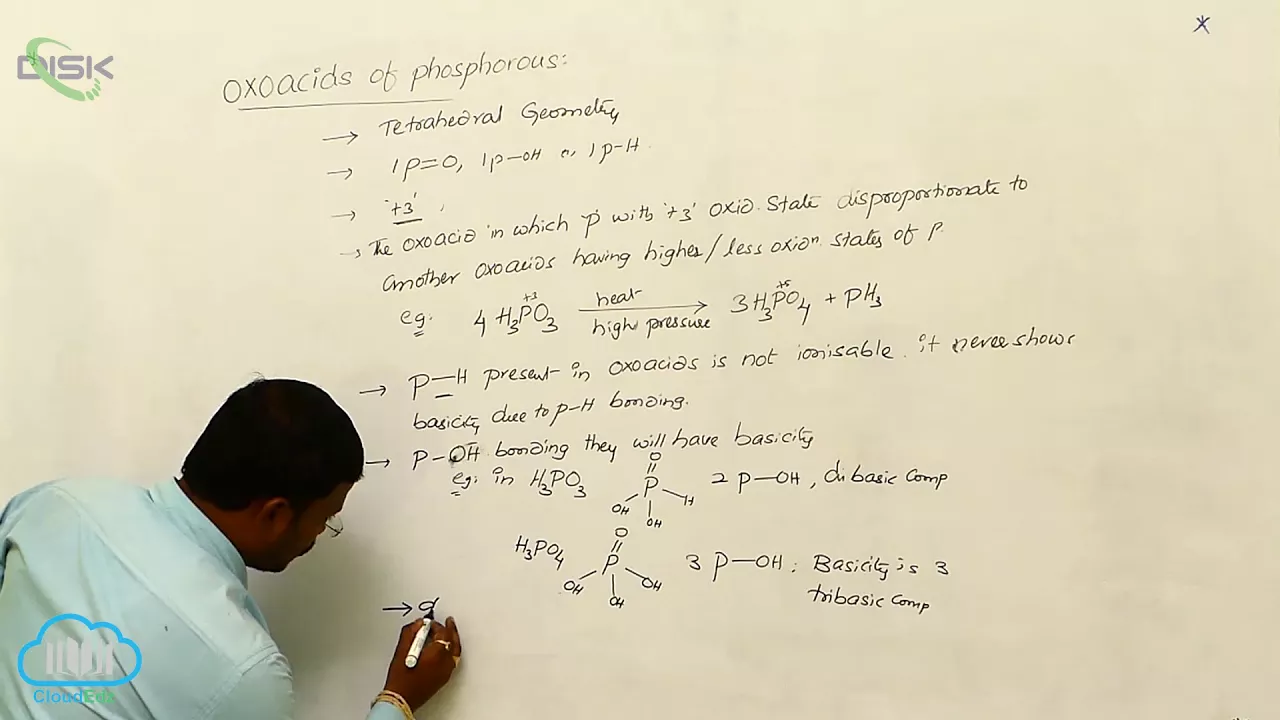 DISK
OXOACIDS of phosphorous:
→ Tetrahedral Geometry
→ 1P=O, 1P-OH , 1P-H
→ '+3'
→ The OXOACID in which 'P' with '+3' OXID. State disproportionate to
another OXOACIDS having higher/less oxion. states of P.
eg: 4 H3P+3O3 heat high pressure → 3H3P+5O4 + PH3
→ P-H present in OXOACIDS is not ionisable. it never shows
basicity due to P-H bonding.
→ P-OH bonding they will have basicity
eg: in H3PO3 O P OH OH H 2 P-OH, dibasic comp
H3PO4 O P OH OH OH 3 P-OH: Basicity is 3
tribasic comp
→
CloudEdz